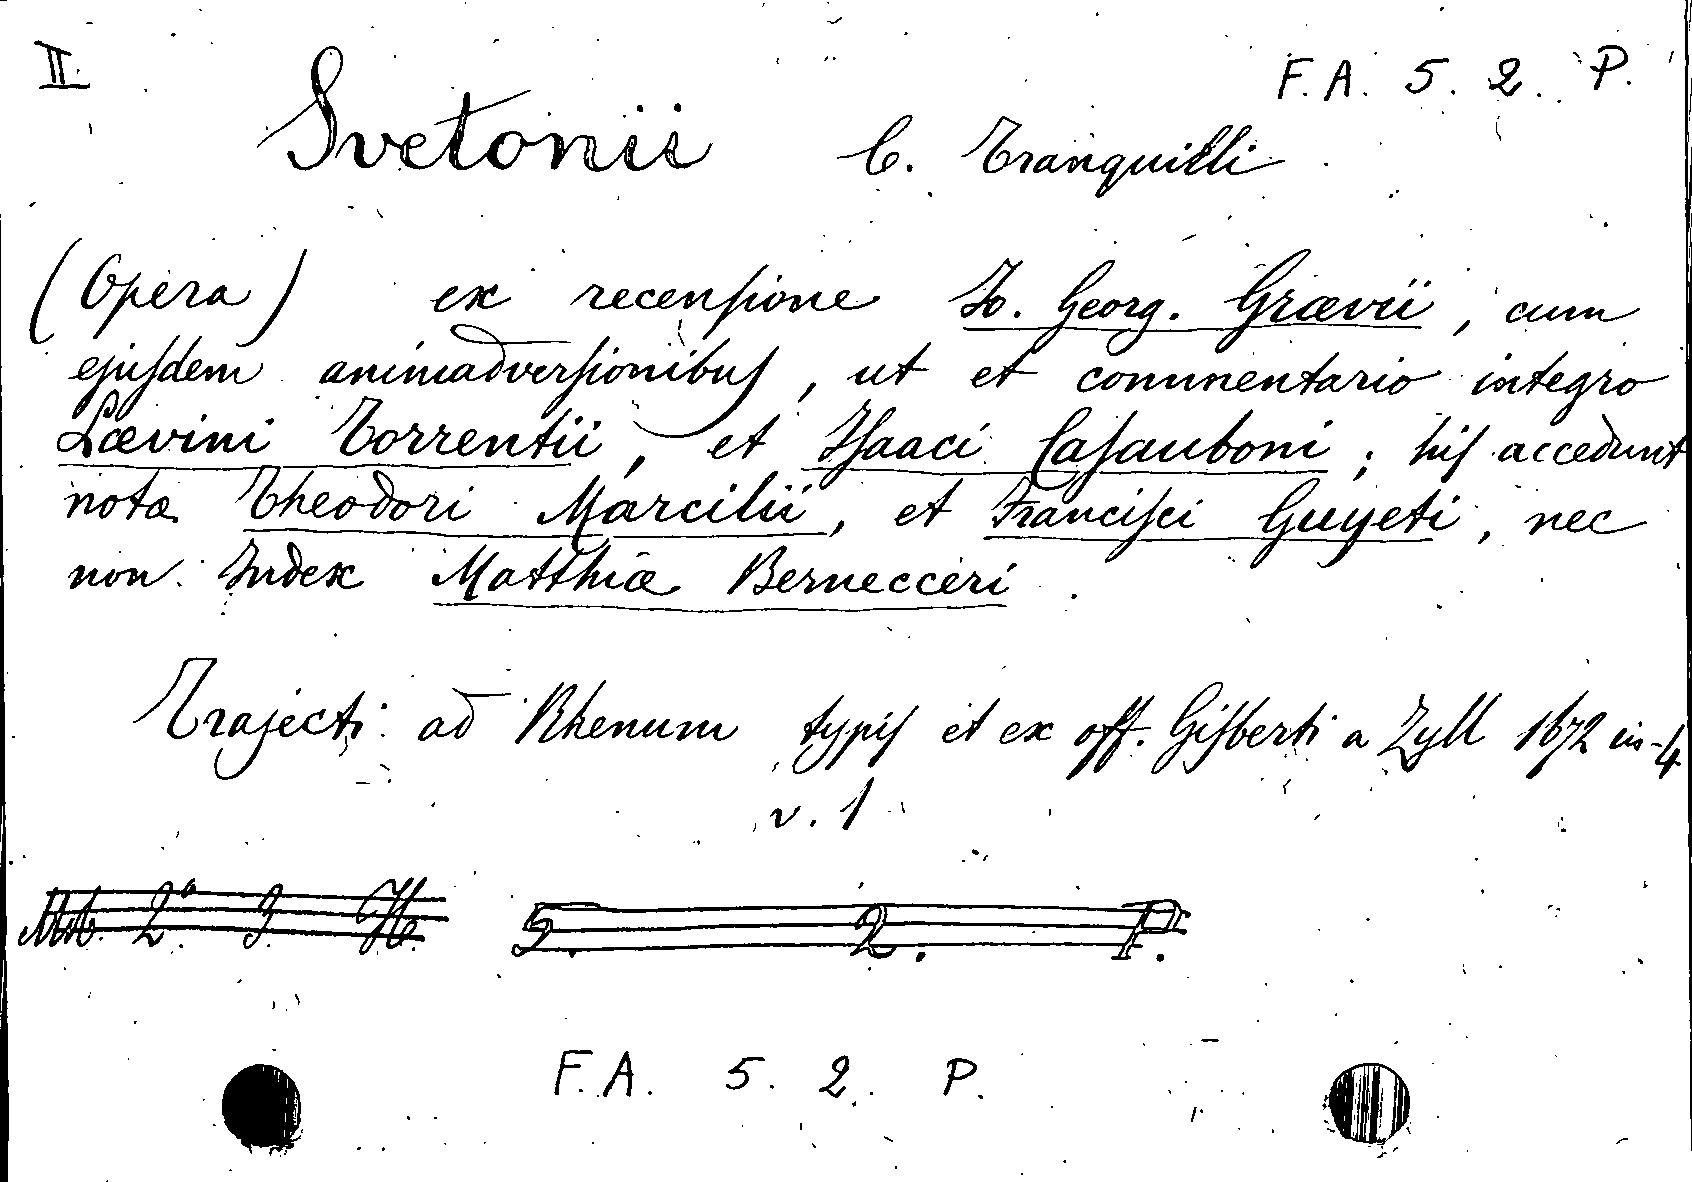 II.
F. A. 5. 2. P.
Svetonii C. Tranquilli
(Opera) ex recensione Io. Georg. Grævii, cum
ejusdem animadversionibus, ut et commentario integro
Lævini Torrentii, et Isaaci Casauboni; his accedunt
notæ Theodori Marcilii, et Francisci Guyeti, nec
non Index Matthiæ Bernecceri.
Trajecti ad Rhenum typis et ex off. Gisberti a Zyll 1672 in-4
v. 1
2º 3. 5. 2. P.
F. A. 5. 2. P.